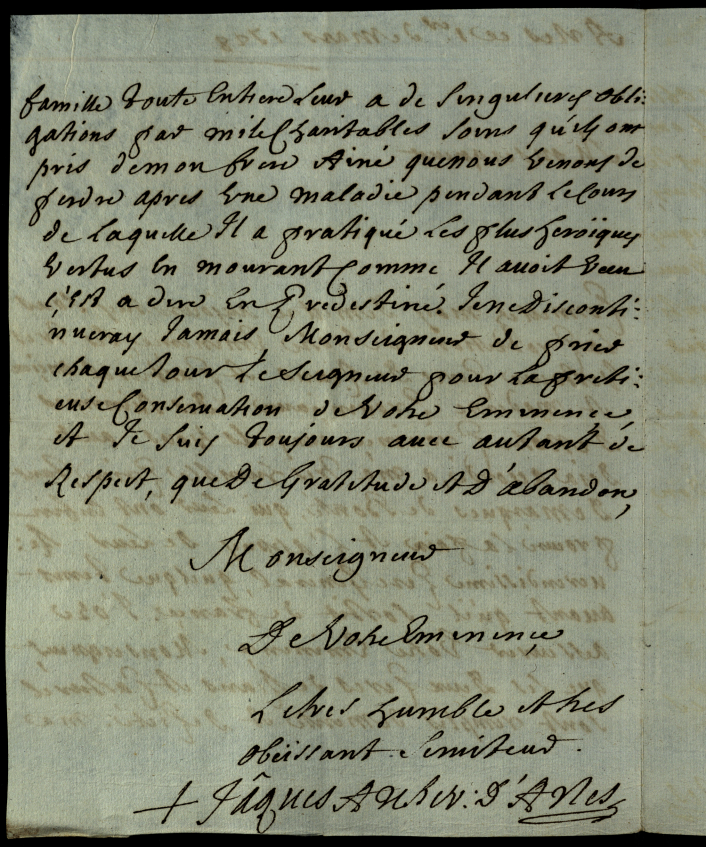 famille toute Entiere leur a de Singulieres obli:
gations par mile Charitables Soins qu'ils ont
pris de mon frere Ainé que nous Venons de
perdre apres Vne maladie pendant Le Cours
de Laquelle Il a pratiqué Les plus heroïques
Vertus En mourant Comme Il auoit Vecu
c'Est a dire En Predestiné. Je ne Disconti:
nueray Jamais Monseigneur de prier
chaque Jour Le Seigneur pour La preti:
euse Conseruation de Votre Eminence,
et Je Suis toujours auec autant de
Respect, que De Gratitude et D'abandon,
Monseigneur
De Votre Eminençe
Le tres humble et tres
obeïssant Seruiteur.
+ Jâques Archev: D'Arles